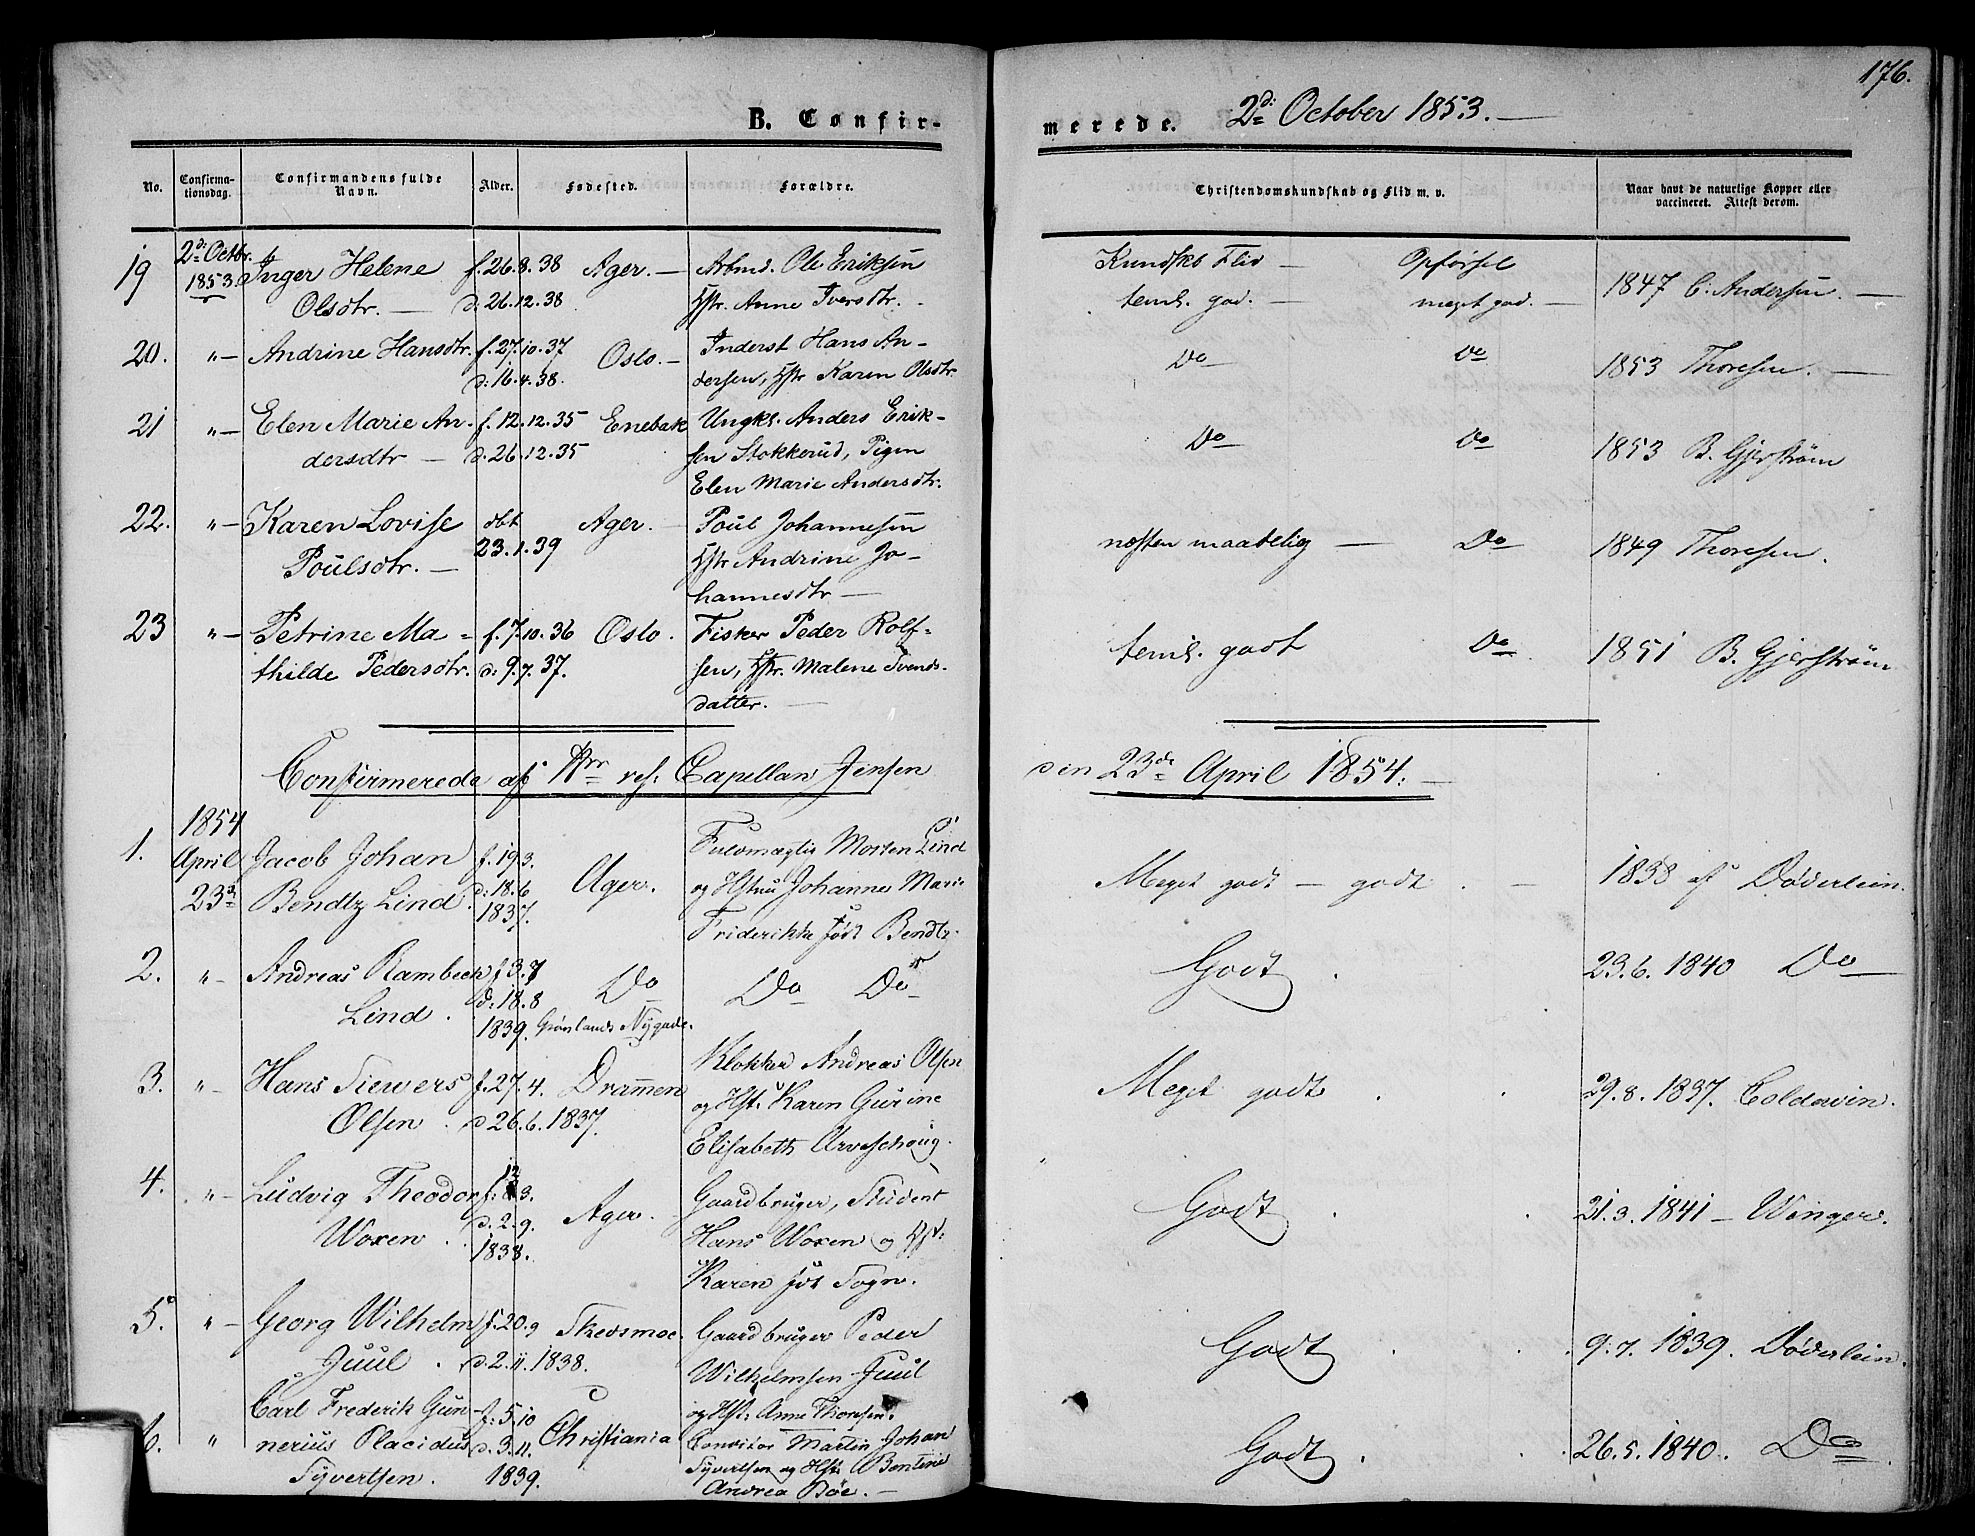 176.
B. Confir-
merede. 2d: October 1853. —
No.
Confirma-
tionsdag.
Confirmandens fulde
Navn.
Alder.
Fødested.
Forældre.
Christendomskundskab og Flid m. v.
Naar havt de naturlige Kopper eller
vaccineret. Attest derom.
19 2d: Octbr. 1853. Inger Helene f. 26.8.38 Ager. — Arbmd. Ole Eriksen Kundskb Flid — Opførsel 1847 C. Andersen. —
Olsdtr. — d. 26.12.38 Hstr. Anne Iversdtr. teml. god. — meget god. —
20. "— Andrine Hansdtr. f. 27.10.37 Oslo. — Inderst Hans An- Do Do 1853 Thoresen. —
d: 16.4.38. dersen, Hstr Karen Olsdtr.
21 "— Elen Marie An- f. 12.12.35 Enebak Ungkl. Anders Erik- Do Do 1853 B. Gjerstrøm
dersdtr — d. 26.12.35 sen Stokkerud, Pigen
Elen Marie Andersdtr.
22. "— Karen Lovise dbt Ager. — Poul Johannesen næsten maadelig — Do 1849 Thoresen.
Poulsdtr. — 23.1.39 Hstr Andrine Jo-
hannesdtr —
23 "— Petrine Ma- f. 7.10.36 Oslo. Fisker Peder Rolf- teml. godt Do 1851 B. Gjerstrøm
thilde Pedersdtr. d: 9.7.37. sen, Hstr. Malene Svends-
datter. —
Confirmerede af Hrr res: Capellan Jensen den 23de April 1854. —
1. 1854 April 23d Jacob Johan f. 19.3. Ager. Fuldmægtig Morten Lind Meget godt — godt. — 1838 af Døderlein.
Bendtz Lind. d: 18.6 og Hstru Johanne Marie
1837. Friderikke født Bendtz.
2. "— Andreas Rambech f. 3.7 Do Do Do Godt. 23.6.1840 Do
Lind. d: 18.8
1839. Grønlands Nygade.
3. "— Hans Siewers f. 27.4. Drammen Klokker Andreas Olsen Meget godt. 29.8.1837. Coldevin.
Olsen. d 26.6.1837. og Hst: Karen Gurine
Elisabeth Arveschoug.
4. "— Ludvig Theodor f. 12.3. Ager. Gaardbruger, Student Godt. 21.3.1841 — Winger.
Woxen. d. 2.9. Hans Woxen og Hst:
1838. Karen fdt Sogn.
5. "— Georg Wilhelm f. 20.9 Skedsmoe. Gaardbruger Peder Godt. 9.7.1839. Døderlein.
Juul. d. 2.11.1838. Wilhelmsen Juul
og Hst: Anne Thoresen.
6. " Carl Frederik Gun- f: 5.10 Christiania Conditor Martin Johan Godt. 26.5.1840. Do
nerius Placidus d. 3.11. Syvertsen og Hst: Bentine
Syvertsen. 1839. Andrea Bøe. —